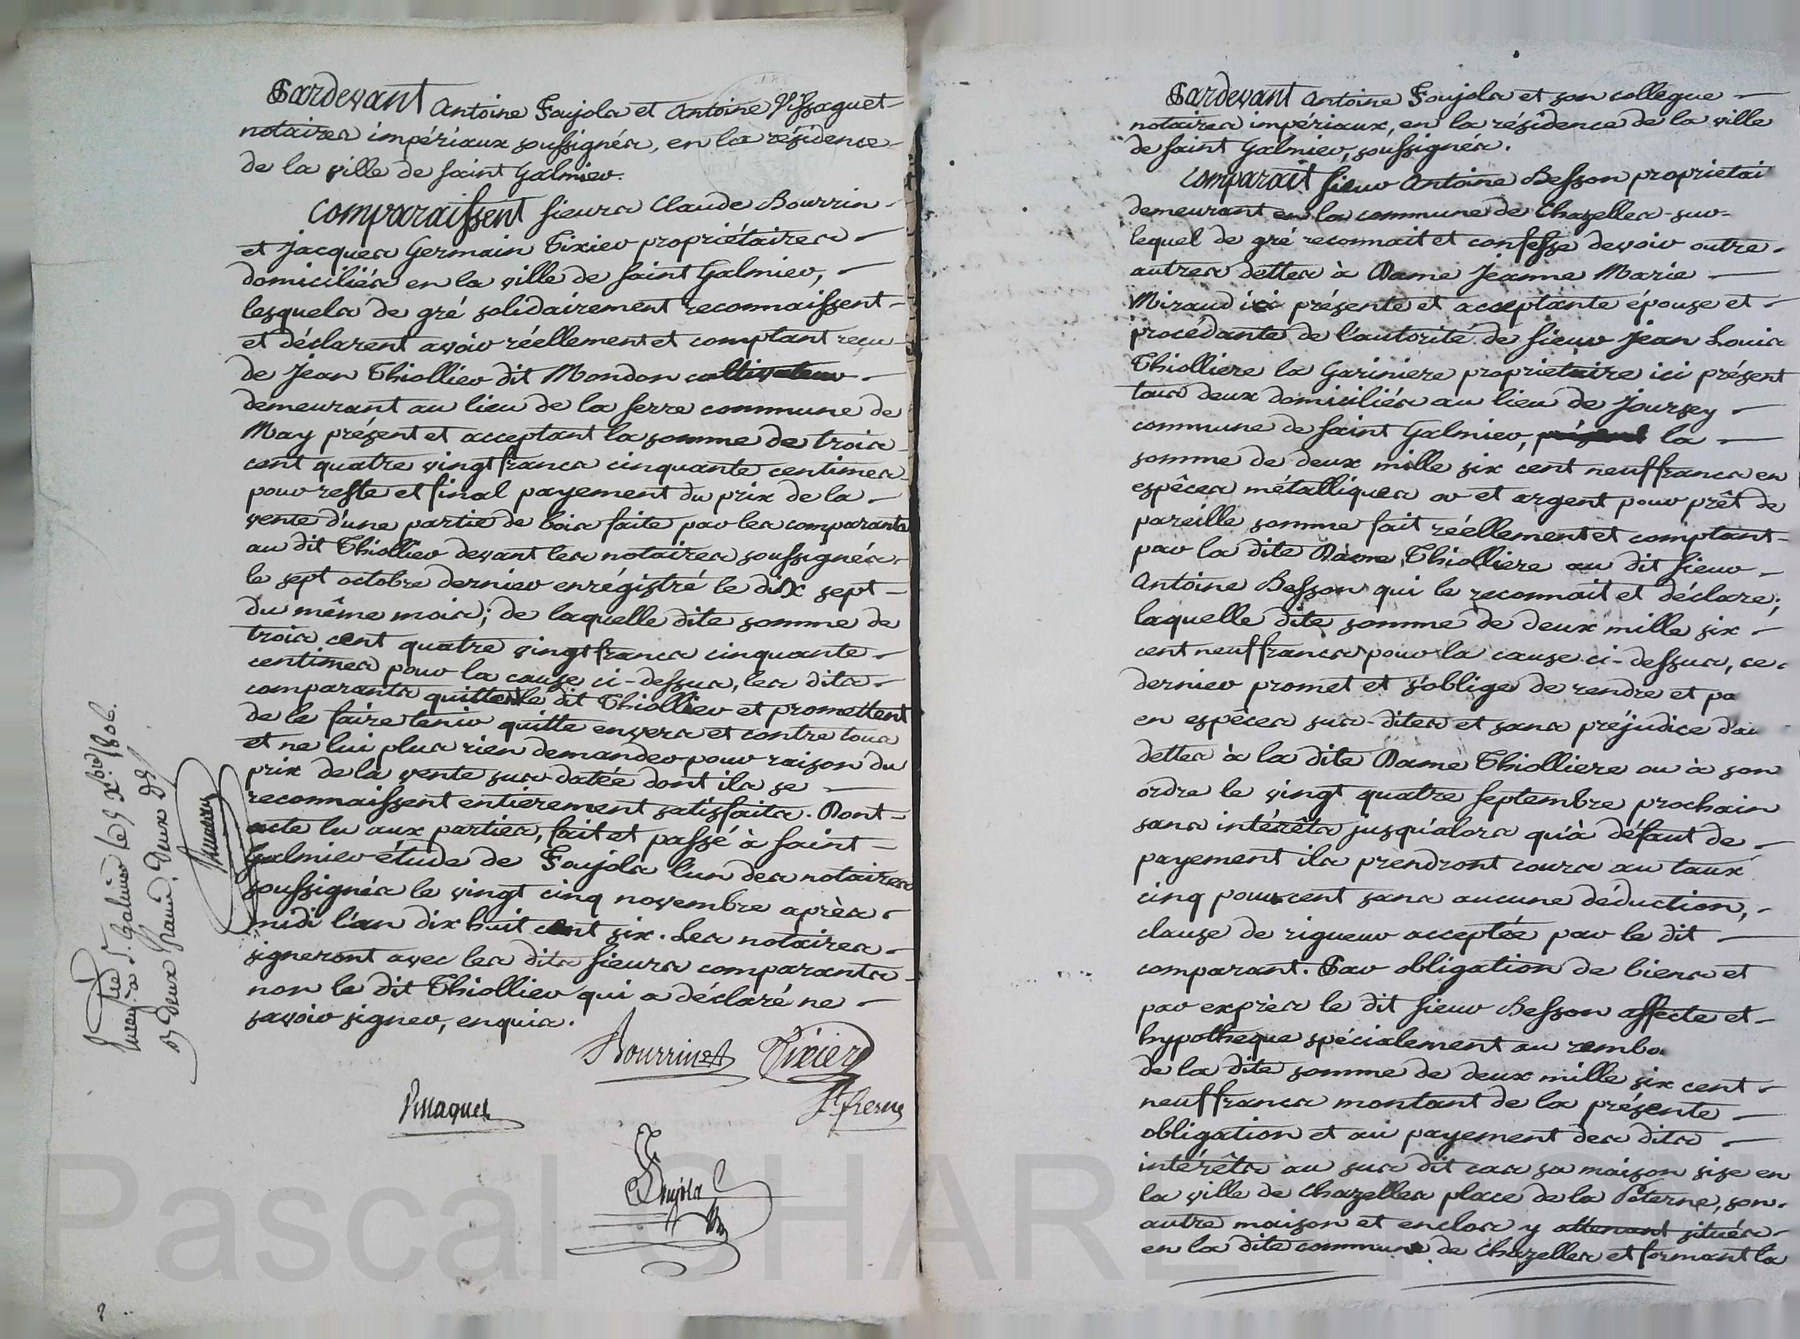 Pardevant Antoine Foujols et Antoine Vissaguet
notaires impériaux soussignés, en la résidence
de la ville de Saint Galmier.
Comparaissent Sieurs Claude Bourrin
et Jacques Germain Tixier propriétaires
domiciliés en la ville de Saint Galmier,
lesquels de gré solidairement reconnaissent
et déclarent avoir réellement et comptant reçu
de Jean Thiollier dit Mondon cultivateur
demeurant au lieu de la serre commune de
May présent et acceptant la somme de trois
cent quatre vingt francs cinquante centimes
pour reste et final payement du prix de la
vente d'une partie de bois faite par les comparants
au dit Thiollier devant les notaires soussignés
le sept octobre dernier enrégistré le dix sept
du même mois; de laquelle dite somme de
trois cent quatre vingt francs cinquante
centimes pour la cause ci-dessus, les dits
comparants quittent le dit Thiollier et promettent
de le faire tenir quitte envers et contre tous
et ne lui plus rien demander pour raison du
prix de la vente sus datée dont ils se
reconnaissent entièrement satisfaits. Dont
acte lu aux parties, fait et passé à Saint
Galmier étude de Foujols l'un des notaires
soussignés le vingt cinq novembre après
midi l'an dix huit cent six. Les notaires
signeront avec les dits Sieurs comparants
non le dit Thiollier qui a déclaré ne
savoir signer, enquis.
Bourrin Tixier
Vissaguet
Foujols
à St. Galmier le 5 Xbre 1806.
deux francs, deux Ds
Pardevant Antoine Foujols et son collègue
notaires impériaux, en la résidence de la ville
de Saint Galmier, soussignés.
Comparaît Sieur Antoine Besson propriétai
demeurant en la commune de Chazelles-sur-
lequel de gré reconnait et confesse devoir outre
autres dettes à Dame Jeanne Marie
Miraud ici présente et acceptante épouse et
procédante de l'autorité de Sieur Jean Louis
Thiolliere la Gariniere propriétaire ici présent
tous deux domiciliés au lieu de Joursey
commune de Saint Galmier, la
somme de deux mille six cent neuf francs en
espèces métalliques or et argent pour prêt de
pareille somme fait réellement et comptant
par la dite Dame Thiolliere au dit Sieur
Antoine Besson qui le reconnait et déclare;
laquelle dite somme de deux mille six
cent neuf francs pour la cause ci-dessus, ce
dernier promet et s'oblige de rendre et pa
en espèces sus-dites et sans préjudice d'au
dettes à la dite Dame Thiolliere ou à son
ordre le vingt quatre septembre prochain
sans intérêts jusqu'alors qu'à défaut de
payement ils prendront cours au taux
cinq pour cent sans aucune déduction,
clause de rigueur acceptée par le dit
comparant. Par obligation de biens et
par exprès le dit Sieur Besson affecte et
hypothèque spécialement au rembo
de la dite somme de deux mille six cent
neuf francs montant de la présente
obligation et au payement des dits
intérêts au sus dit cas sa maison sise en
la ville de Chazelles place de la Poterne, son
autre maison et enclos y attenant situés
en la dite commune de Chazelles et formant la
Pascal CHAREYRON